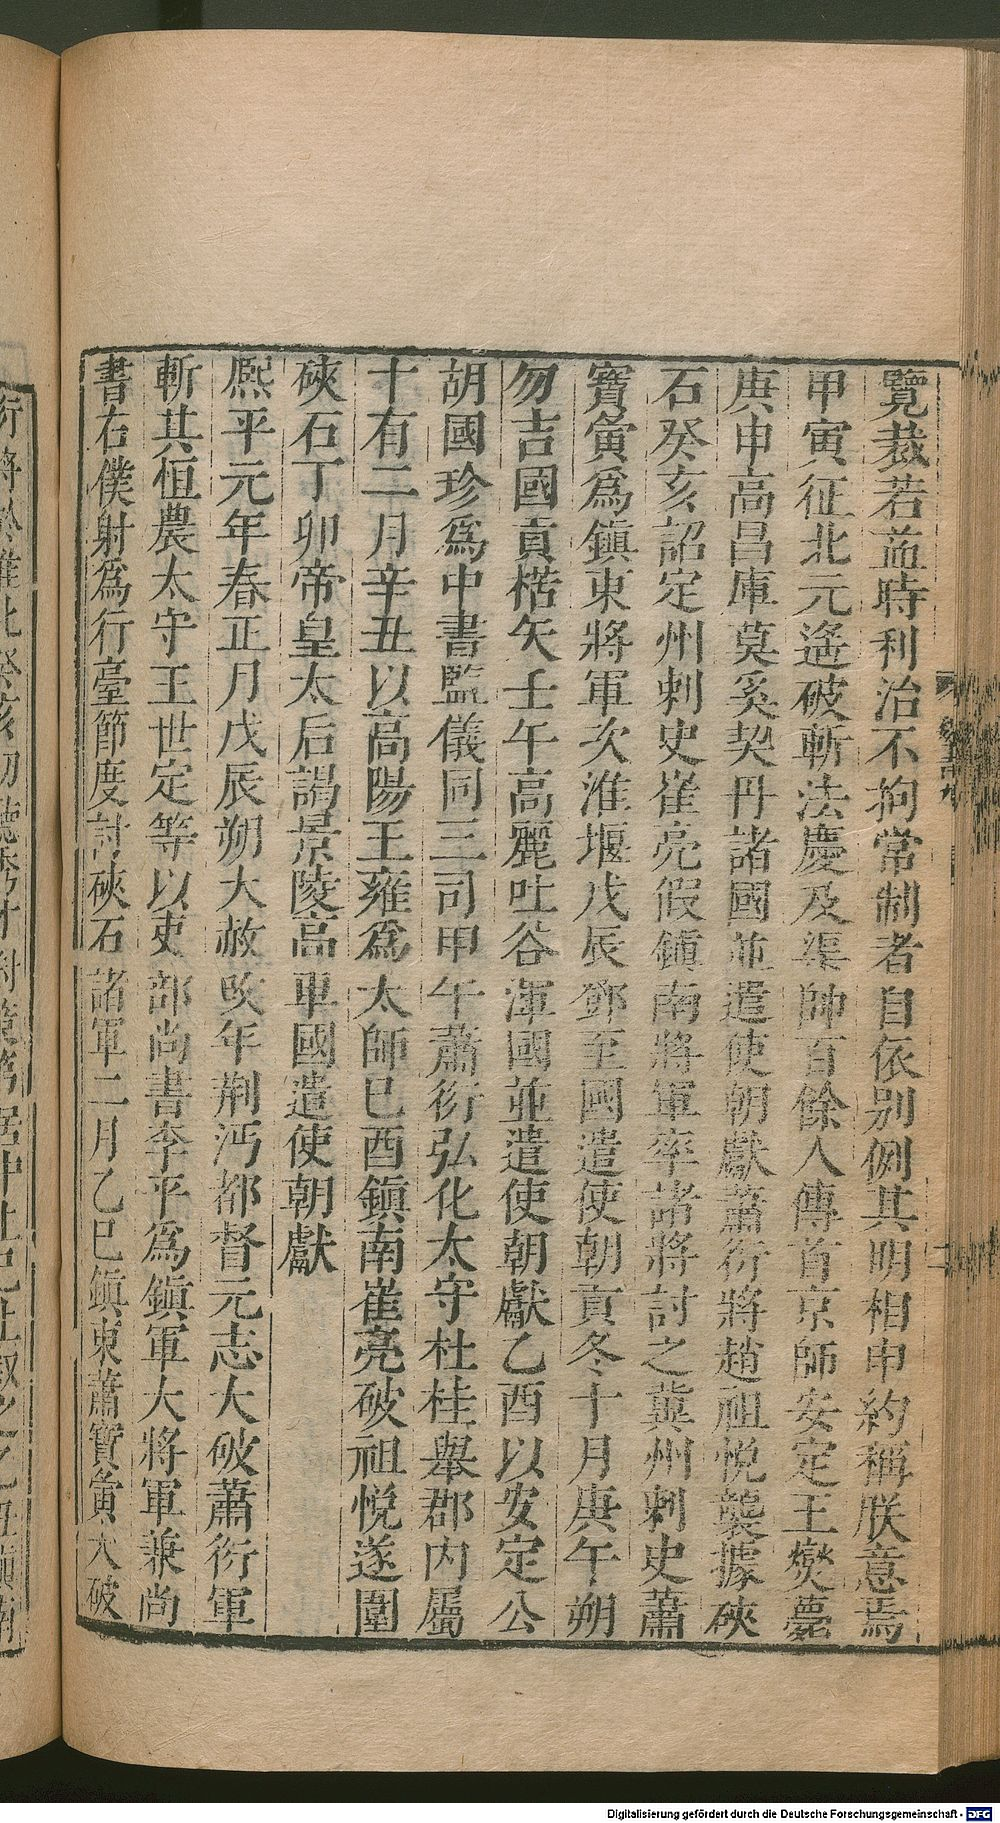 覽裁若益時利治不拘常制者自依別例其明相申約稱朕意焉
甲寅征北元遙破斬法慶及渠帥百餘人傳首京師安定王燮薨
庚申高昌庫莫奚契丹諸國並遣使朝獻蕭衍將趙祖悅襲據硤
石癸亥詔定州刺史崔亮假鎮南將軍率諸將討之冀州刺史蕭
寶夤爲鎮東將軍次淮堰戊辰鄧至國遣使朝貢冬十月庚午朔
勿吉國貢楛矢壬午高麗吐谷渾國並遣使朝獻乙酉以安定公
胡國珍爲中書監儀同三司甲午蕭衍弘化太守杜桂舉郡內屬
十有二月辛丑以高陽王雍爲太師巳酉鎮南崔亮破祖悅遂圍
硤石丁卯帝皇太后謁景陵高車國遣使朝獻
熙平元年春正月戊辰朔大赦改年荊沔都督元志大破蕭衍軍
斬其恒農太守王世定等以吏部尚書李平爲鎮軍大將軍兼尚
書右僕射爲行臺節度討硤石諸軍二月乙巳鎮東蕭寶夤大破
Digitalisierung gefördert durch die Deutsche Forschungsgemeinschaft - DFG